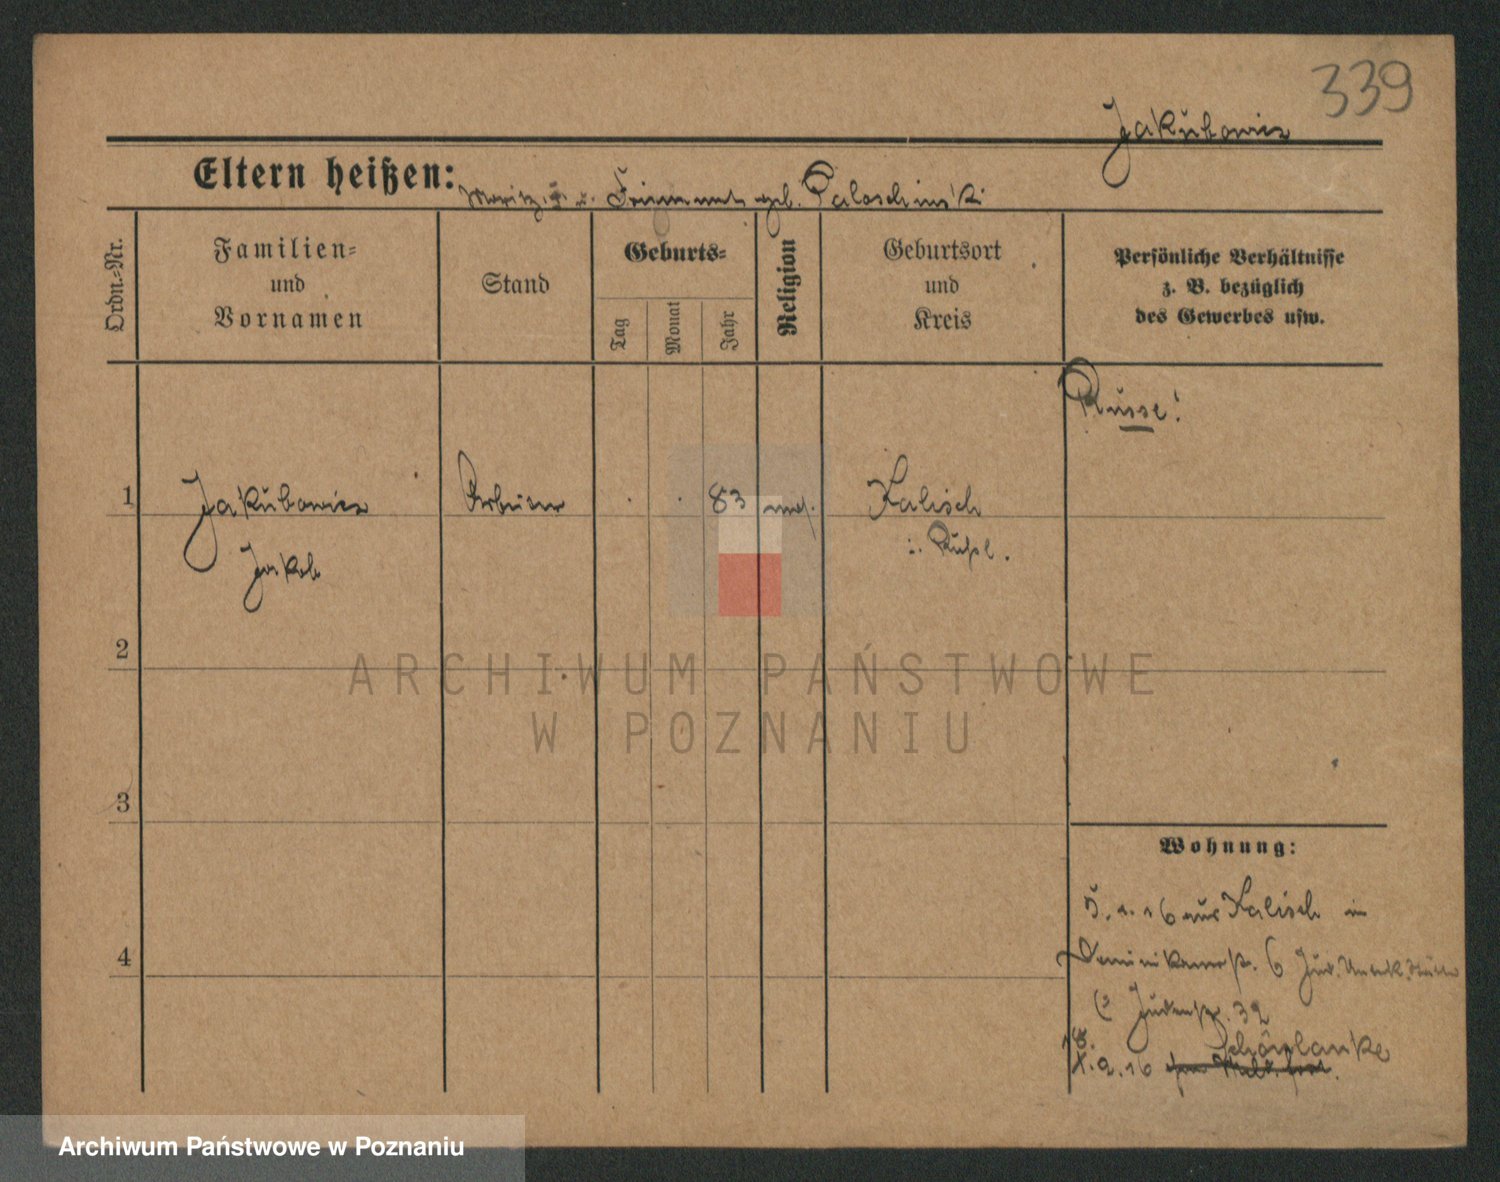 339
Jakubowicz
Eltern heißen: Moritz J. u. geb.
Ordn.-Nr.
Familien-
und
Vornamen
Stand
Geburts-
Tag
Monat
Jahr
Religion
Geburtsort
und
Kreis
Persönliche Verhältnisse
z. B. bezüglich
des Gewerbes usw.
Russe!
1 Jakubowicz Arbeiter 83 mos. Kalisch
Jakob i. Rußl.
2
ARCHIWUM PAŃSTWOWE
W POZNANIU
3
Wohnung:
5. 1. 16 aus Kalisch in
4 Dominikanerstr. 6
Judenstr. 32
18. Schönlanke
2. 16
Archiwum Państwowe w Poznaniu